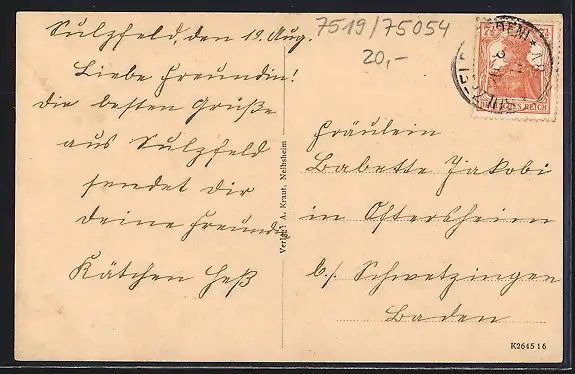 Sulzfeld, den 12. Aug.
Liebe Freundin!
die besten Grüße
aus Sulzfeld
sendet dir
deine Freundin
Kätchen Heß
7519/75054
20,-
DEUTSCHES REICH
Verlag: A. Kraut, Neibsheim
Fräulein
Babette Jakobi
in Oftersheim
b./ Schwetzingen
Baden
K264516